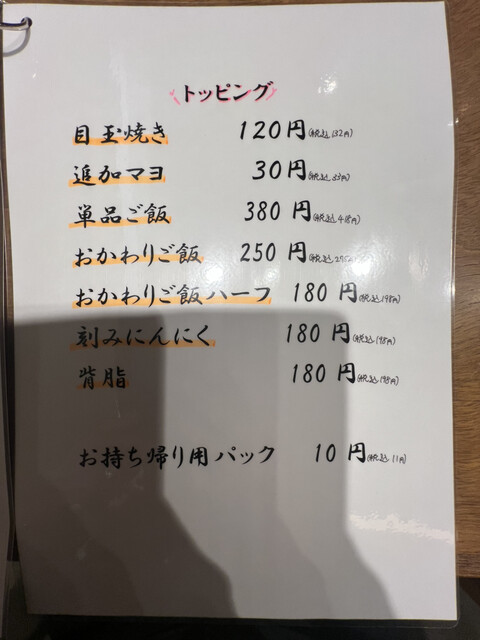 トッピング
目玉焼き 120円(税込132円)
追加マヨ 30円(税込33円)
単品ご飯 380円(税込418円)
おかわりご飯 250円(税込275円)
おかわりご飯ハーフ 180円(税込198円)
刻みにんにく 180円(税込198円)
背脂 180円(税込198円)
お持ち帰り用パック 10円(税込11円)